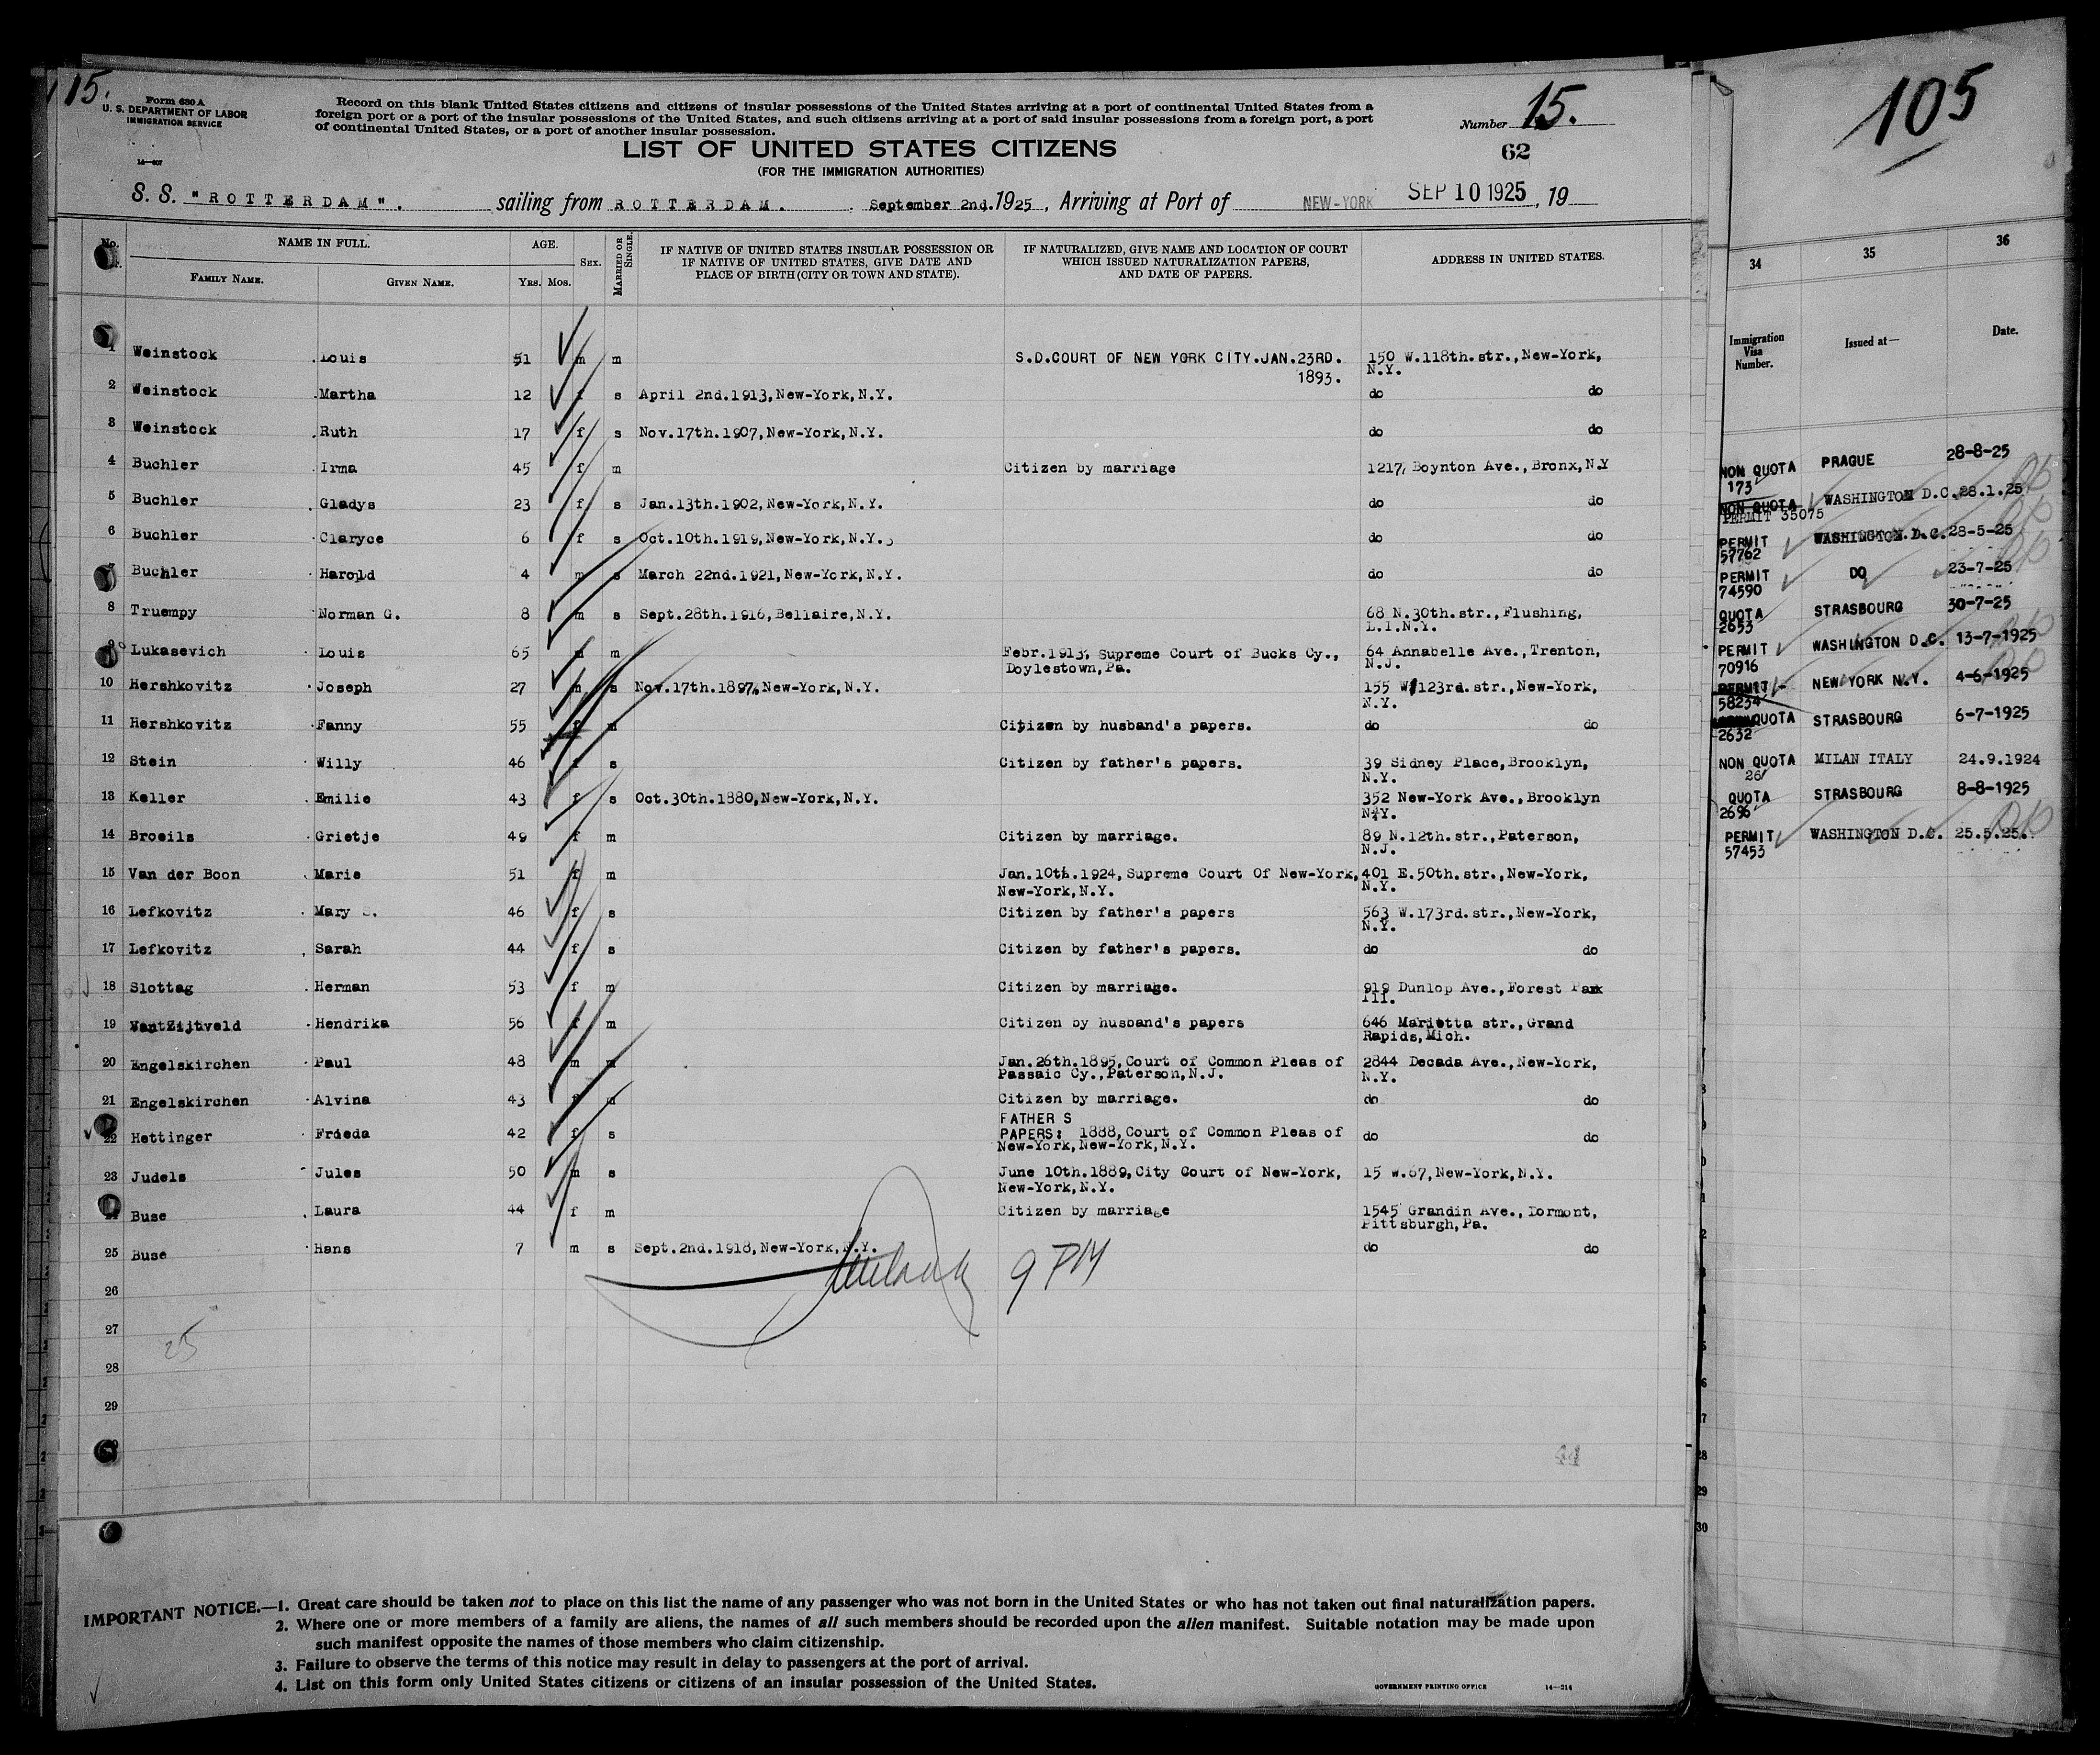 15.
Form 630 A
U. S. DEPARTMENT OF LABOR
IMMIGRATION SERVICE
14—407
Record on this blank United States citizens and citizens of insular possessions of the United States arriving at a port of continental United States from a
foreign port or a port of the insular possessions of the United States, and such citizens arriving at a port of said insular possessions from a foreign port, a port
of continental United States, or a port of another insular possession.
Number 15.
62
LIST OF UNITED STATES CITIZENS
(FOR THE IMMIGRATION AUTHORITIES)
S. S. "ROTTERDAM". sailing from ROTTERDAM. September 2nd. 1925, Arriving at Port of NEW-YORK SEP 10 1925, 19
No. NAME IN FULL. AGE. SEX. MARRIED OR SINGLE. IF NATIVE OF UNITED STATES INSULAR POSSESSION OR IF NATIVE OF UNITED STATES, GIVE DATE AND PLACE OF BIRTH (CITY OR TOWN AND STATE). IF NATURALIZED, GIVE NAME AND LOCATION OF COURT WHICH ISSUED NATURALIZATION PAPERS, AND DATE OF PAPERS. ADDRESS IN UNITED STATES.
FAMILY NAME. GIVEN NAME. YRS. MOS.
1 Weinstock Louis 51 m m S.D.COURT OF NEW YORK CITY.JAN.23RD. 150 W.118th.str.,New-York,
1893. N.Y.
2 Weinstock Martha 12 f s April 2nd.1913,New-York,N.Y. do do
3 Weinstock Ruth 17 f s Nov.17th.1907,New-York,N.Y. do do
4 Buchler Irma 45 f m Citizen by marriage 1217, Boynton Ave.,Bronx,N.Y
5 Buchler Gladys 23 f s Jan.13th.1902,New-York,N.Y. do do
6 Buchler Claryce 6 f s Oct.10th.1919,New-York,N.Y. do do
7 Buchler Harold 4 m s March 22nd.1921,New-York,N.Y. do do
8 Truempy Norman G. 8 m s Sept.28th.1916,Bellaire,N.Y. 68 N.30th.str.,Flushing,
L.I.N.Y.
9 Lukasevich Louis 65 m m Febr.1913, Supreme Court of Bucks Cy., 64 Annabelle Ave.,Trenton,
Doylestown,Pa. N.J.
10 Hershkovitz Joseph 27 m s Nov.17th.1897,New-York,N.Y. 155 W 123rd.str.,New-York,
N.Y.
11 Hershkovitz Fanny 55 f m Citizen by husband's papers. do do
12 Stein Willy 46 f s Citizen by father's papers. 39 Sidney Place,Brooklyn,
N.Y.
13 Keller Emilie 43 f s Oct.30th.1880,New-York,N.Y. 352 New-York Ave.,Brooklyn
N.Y.
14 Broeils Grietje 49 f m Citizen by marriage. 89 N.12th.str.,Paterson,
N.J.
15 Van der Boon Marie 51 f m Jan.10th.1924,Supreme Court Of New-York, 401 E.50th.str.,New-York,
New-York,N.Y. N.Y.
16 Lefkovitz Mary S. 46 f s Citizen by father's papers 563 W.173rd.str.,New-York,
N.Y.
17 Lefkovitz Sarah 44 f s Citizen by father's papers. do do
18 Slottag Herman 53 f m Citizen by marriage. 919 Dunlop Ave.,Forest Park
Ill.
19 Hendrika 56 f m Citizen by husband's papers 646 Marietta str.,Grand
Rapids,Mich.
20 Engelskirchen Paul 48 m m Jan.26th.1895,Court of Common Pleas of 2844 Decada Ave.,New-York,
Passaic Cy.,Paterson,N.J. N.Y.
21 Engelskirchen Alvina 43 f m Citizen by marriage. do do
FATHER S
22 Hettinger Frieda 42 f s PAPERS: 1888,Court of Common Pleas of do do
New-York,New-York,N.Y.
23 Judels Jules 50 m s June 10th.1889,City Court of New-York, 15 W.67,New-York,N.Y.
New-York,N.Y.
24 Buse Laura 44 f m Citizen by marriage 1545 Grandin Ave.,Dormont,
Pittsburgh,Pa.
25 Buse Hans 7 m s Sept.2nd.1918,New-York,N.Y. do do
9 PM
26
27
25
28
29
30
44
IMPORTANT NOTICE.—1. Great care should be taken not to place on this list the name of any passenger who was not born in the United States or who has not taken out final naturalization papers.
2. Where one or more members of a family are aliens, the names of all such members should be recorded upon the alien manifest. Suitable notation may be made upon
such manifest opposite the names of those members who claim citizenship.
3. Failure to observe the terms of this notice may result in delay to passengers at the port of arrival.
4. List on this form only United States citizens or citizens of an insular possession of the United States.
GOVERNMENT PRINTING OFFICE 14—214
105
34 35 36
Immigration Visa Number. Issued at— Date.
NON QUOTA PRAGUE 28-8-25
173
NON QUOTA WASHINGTON D.C. 28.1.25
PERMIT 35075
PERMIT WASHINGTON.D.C. 28-5-25
57762
PERMIT DO 23-7-25
74590
QUOTA STRASBOURG 30-7-25
2653
PERMIT WASHINGTON D.C. 13-7-1925
70916
PERMIT NEW YORK N.Y. 4-6-1925
58234
QUOTA STRASBOURG 6-7-1925
2632
NON QUOTA MILAN ITALY 24.9.1924
26
QUOTA STRASBOURG 8-8-1925
2696
PERMIT WASHINGTON D.C. 25.5.25.
57453
28
29
30